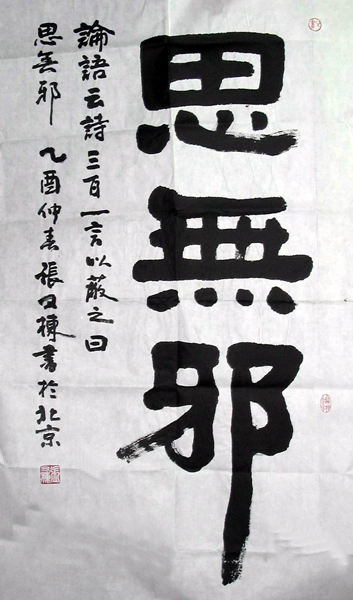 思無邪
論語云詩三百一言以蔽之曰
思無邪 乙酉仲春張又棟書於北京